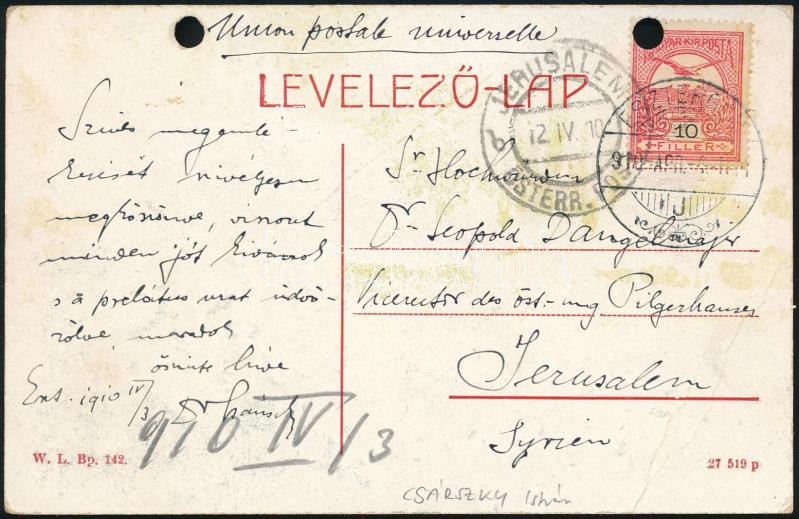 Union postale universelle
LEVELEZŐ-LAP
MAGYAR KIR. POSTA
10
FILLÉR
JERUSALEM
12. IV. 10
b
ÖSTERR. POST
ESZTERGOM
910 APR. 4.
J
Szíves megemlé-
kezését szívélyesen
megköszönve, viszont
minden jót kívánok
s a prelátus urat üdvö-
zölve, maradok
őszinte híve
Eszt. 1910 IV/3 Dr
910 IV/3
Sr Hochwürden
Dr Leopold Dangelmajer
Vicerector des öst-ung Pilgerhauses
Jerusalem
Syrien
W. L. Bp. 142.
27 519 p
CSÁRSZKY István